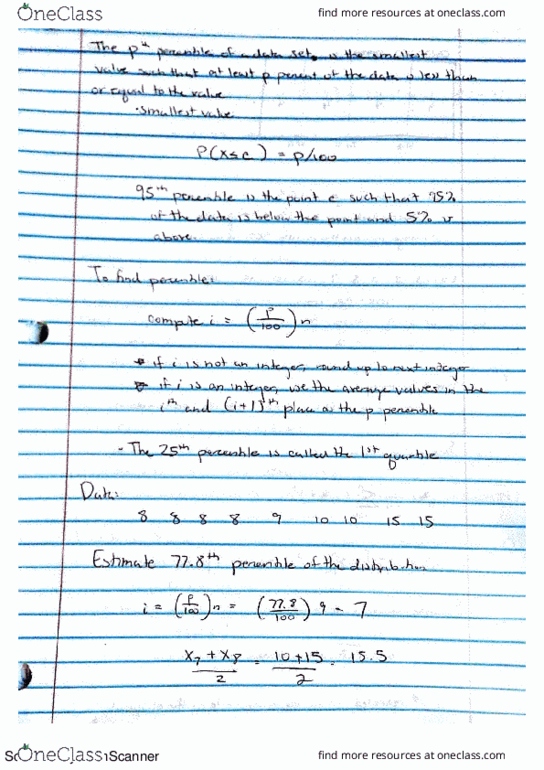 OneClass find more resources at oneclass.com
The pth percentile of a data set, is the smallest
value such that at least p percent of the data is less than
or equal to the value
· smallest value
P(X≤c) = p/100
95th percentile is the point c such that 95%
of the data is below the point and 5% is
above.
To find percentile:
compute i = (P/100)n
* if i is not an integer, round up to next integer
* if i is an integer, use the average values in the
ith and (i+1)th place as the p percentile
- The 25th percentile is called the 1st quartile
Data:
8 8 8 8 9 10 10 15 15
Estimate 77.8th percentile of the distribution
i = (P/100)n = (77.8/100) 9 ~ 7
X7 + X8 / 2 = 10+15 / 2 = 15.5
OneClass Scanner find more resources at oneclass.com